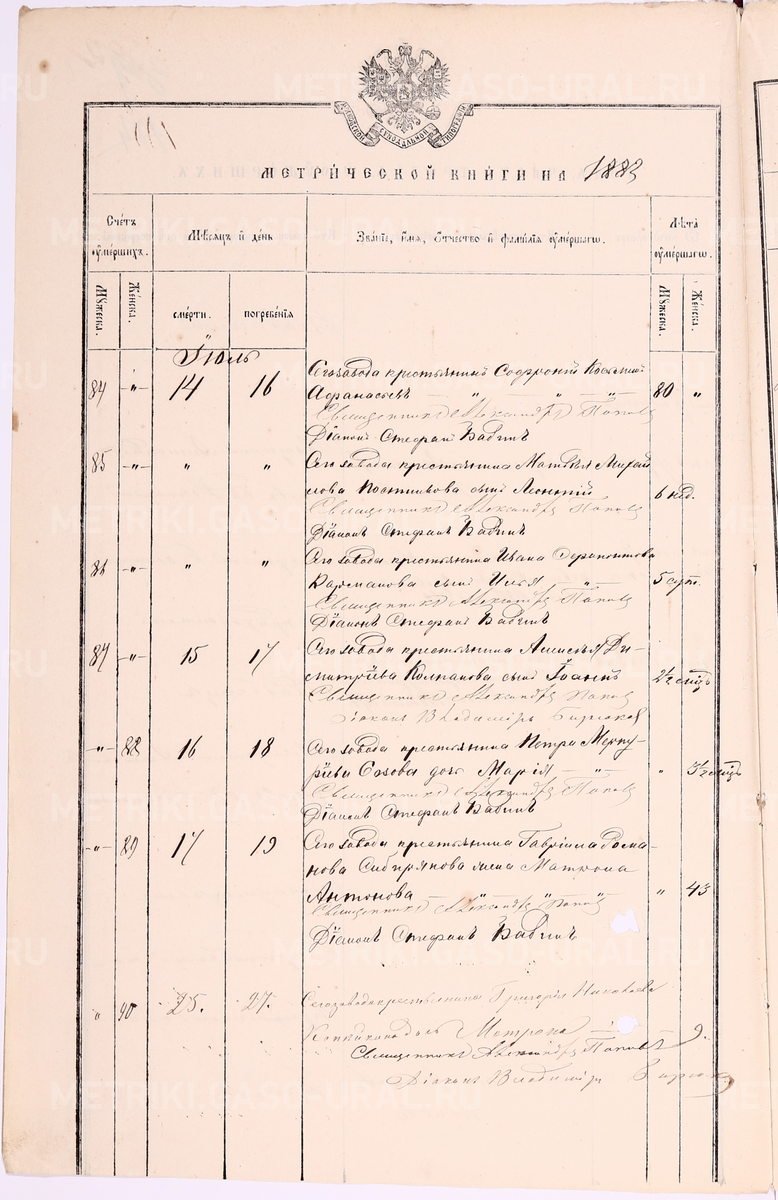 МЕТРИ́ЧЕСКОЙ КНИ́ГИ НА 1883
Сче́тъ ᲂу҆ме́ршихъ.
Мѣ́сяцъ и҆ де́нь
Зва́нїе, и҆́мя, ѻ҆́тчество и҆ фами́лїя ᲂу҆ме́ршагѡ.
Лѣ́та ᲂу҆ме́ршагѡ.
Мꙋ́жеска.
Же́нска.
сме́рти.
погребе́нїя
Мꙋ́жеска.
Же́нска.
Іюль
84 -"- 14 16 Сего завода крестьянинъ Софроній
Афанасьевъ — " — " — " — 80 "
Священникъ Александръ Поповъ
Діаконъ Стефанъ Бабинъ
85 -"- " " Сего завода крестьянина Матвѣя Михай
лова сынъ Леонтій 6 нед.
Священникъ Александръ Поповъ
Діаконъ Стефанъ Бабинъ
86 -"- " " Сего завода крестьянина Ивана Ферапонтова
сынъ Илья — " — 5 сут.
Священникъ Александръ Поповъ
Діаконъ Стефанъ Бабинъ
87 -"- 15 17 Сего завода крестьянина Алексѣя Ди-
митріева Колпакова сынъ Іоаннъ 2½ мѣц
Священникъ Александръ Поповъ
Діаконъ Владиміръ Бирюковъ
-"- 16 18 Сего завода крестьянина Петра Мерку-
рьева дочь Марія — " — " 3½ мѣц
Священникъ Александръ Поповъ
Діаконъ Стефанъ Бабинъ
-"- 89 17 19 Сего завода крестьянина Гавріила Рома
нова Сибирякова жена Матрона
Антонова — " — " — " — " 43
Священникъ Александръ Поповъ
Діаконъ Стефанъ Бабинъ
" 90 25. 27. Сего завода крестьянина Григорія
дочь Матрона 9.
Священникъ Александръ Поповъ
Діаконъ Владиміръ Бирюковъ
METRIKI.GASO-URAL.RU